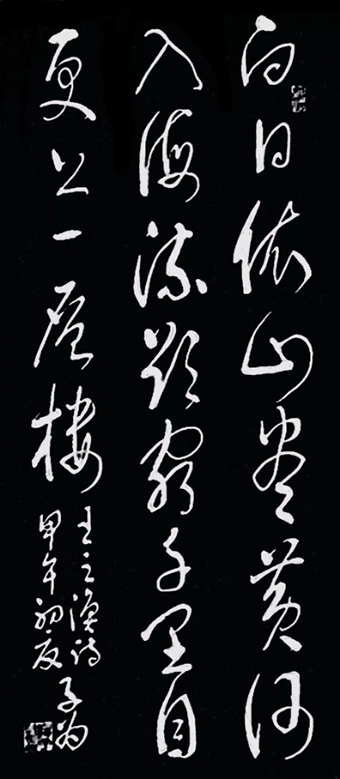 白日依山尽黄河
入海流欲穷千里目
更上一层楼
王之涣诗
甲午初夏 子为